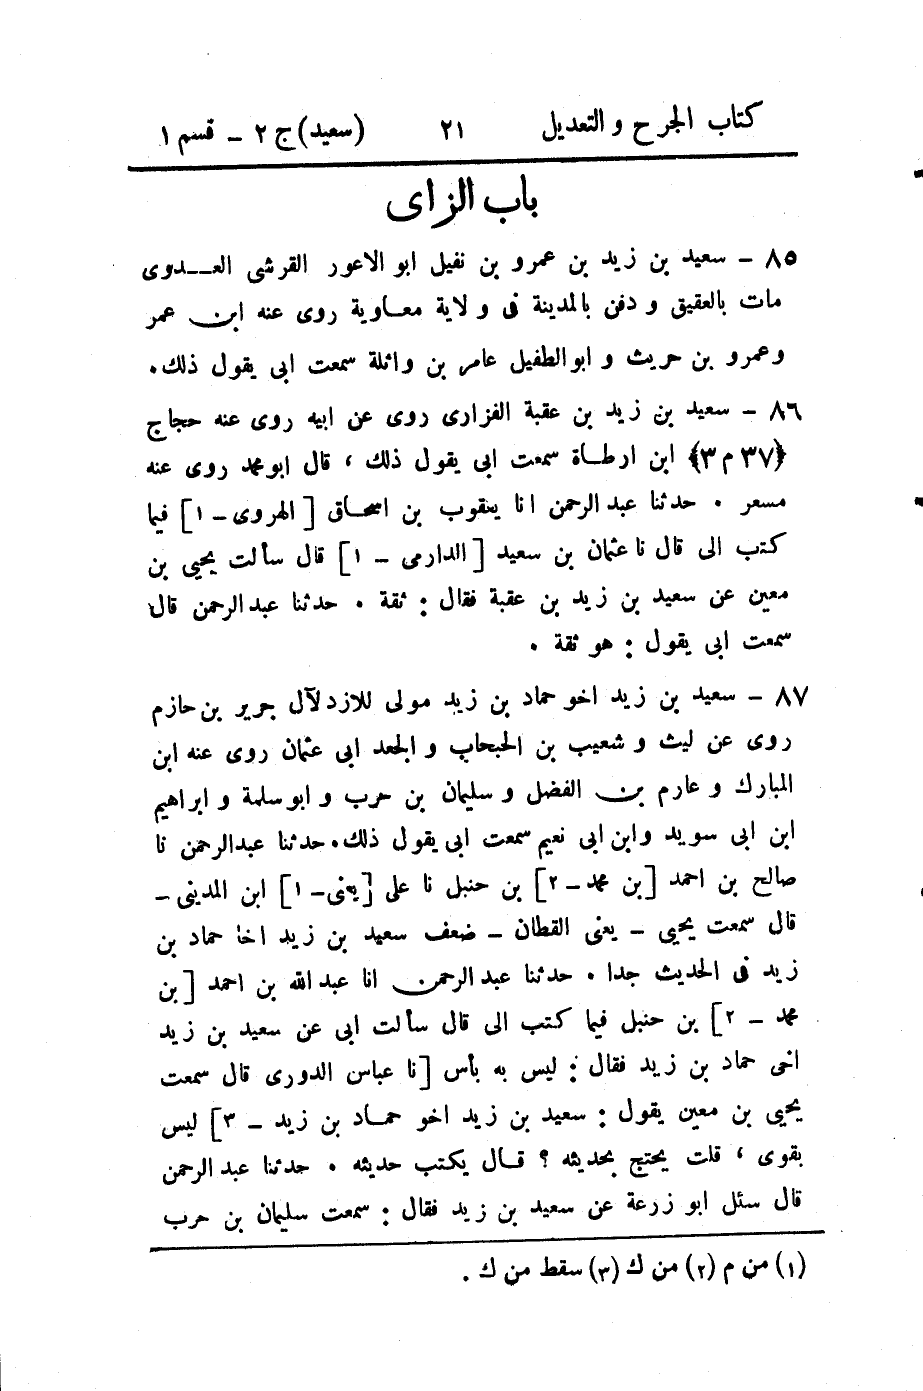 كتاب الجرح والتعديل ٢١ (سعيد) ج ٢ - قسم ١
باب الزاى
٨٥ - سعيد بن زيد بن عمرو بن نفيل ابو الاعور القرشى العدوى
مات بالعقيق و دفن بالمدينة فى ولاية معاوية روى عنه ابن عمر
وعمرو بن حريث و ابوالطفيل عامر بن واثلة سمعت ابى يقول ذلك.
٨٦ - سعيد بن زيد بن عقبة الفزارى روى عن ابيه روى عنه حجاج
﴿٣٧ م ٣﴾ ابن ارطاة سمعت ابى يقول ذلك ، قال ابو محمد روى عنه
مسعر . حدثنا عبد الرحمن انا يعقوب بن اسحاق [ الهروى - ١ ] فيما
كتب الى قال نا عثمان بن سعيد [ الدارمى - ١ ] قال سألت يحيى بن
معين عن سعيد بن زيد بن عقبة فقال : ثقة . حدثنا عبد الرحمن قال
سمعت ابى يقول : هو ثقة .
٨٧ - سعيد بن زيد اخو حماد بن زيد مولى للازد لآل جرير بن حازم
روى عن ليث و شعيب بن الحبحاب و الجعد ابى عثمان روى عنه ابن
المبارك و عارم بن الفضل و سليمان بن حرب و ابو سلمة و ابراهيم
ابن ابى سويد وابن ابى نعيم سمعت ابى يقول ذلك. حدثنا عبدالرحمن نا
صالح بن احمد [بن محمد - ٢] بن حنبل نا على [يعنى - ١] ابن المدينى -
قال سمعت يحيى - يعنى القطان - ضعف سعيد بن زيد اخا حماد بن
زيد فى الحديث جدا . حدثنا عبد الرحمن انا عبد الله بن احمد [بن
محمد - ٢] بن حنبل فيما كتب الى قال سألت ابى عن سعيد بن زيد
اخى حماد بن زيد فقال : ليس به بأس [نا عباس الدورى قال سمعت
يحيى بن معين يقول : سعيد بن زيد اخو حماد بن زيد - ٣] ليس
بقوى ، قلت يحتج بحديثه ؟ قال يكتب حديثه . حدثنا عبد الرحمن
قال سئل ابو زرعة عن سعيد بن زيد فقال : سمعت سليمان بن حرب
(١) من م (٢) من ك (٣) سقط من ك .